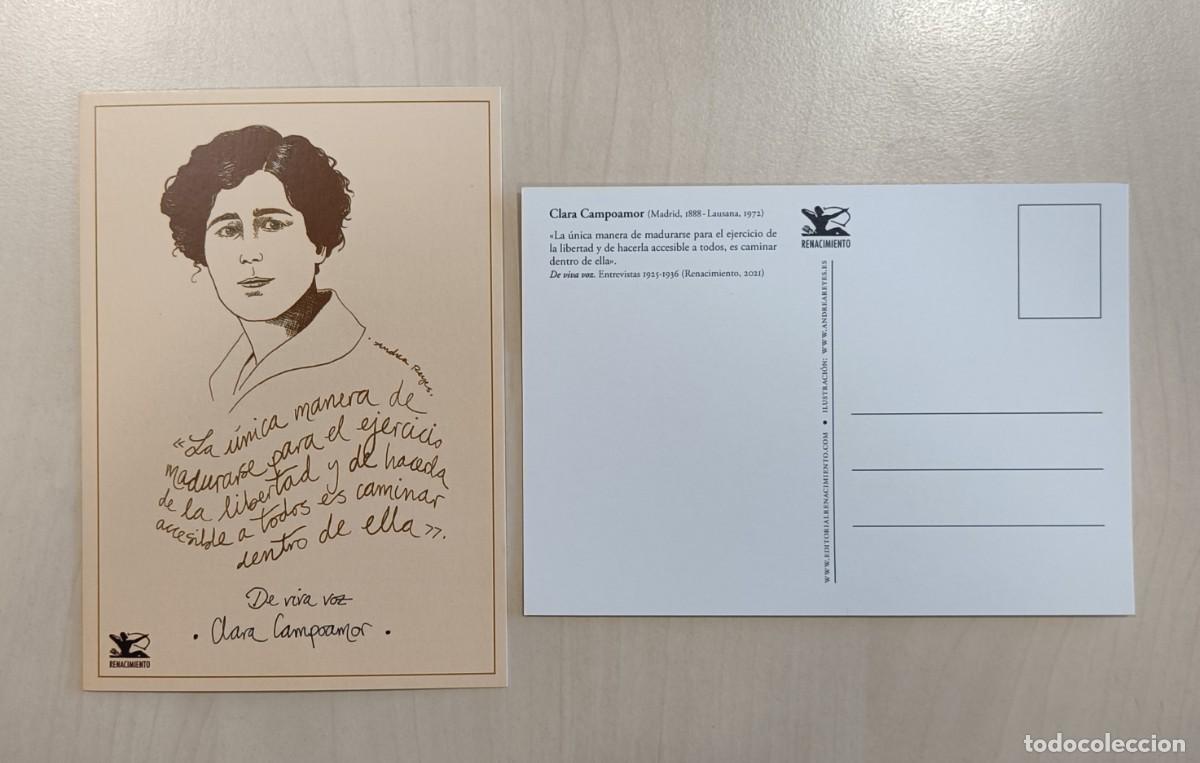 andrea reyes.
«La única manera de
madurarse para el ejercicio
de la libertad y de hacerla
accesible a todos es caminar
dentro de ella».
De viva voz
· Clara Campoamor ·
RENACIMIENTO
Clara Campoamor (Madrid, 1888 - Lausana, 1972)
«La única manera de madurarse para el ejercicio de
la libertad y de hacerla accesible a todos, es caminar
dentro de ella».
De viva voz. Entrevistas 1925-1936 (Renacimiento, 2021)
RENACIMIENTO
WWW.EDITORIALRENACIMIENTO.COM • ILUSTRACIÓN: WWW.ANDREAREYES.ES
todocoleccion